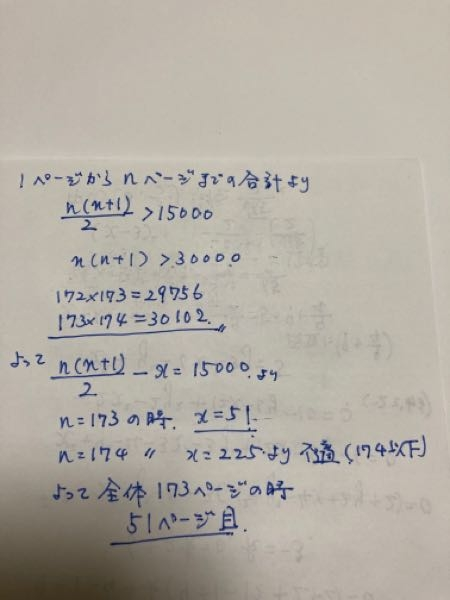 1ページから nページまでの合計より
n(n+1)/2 >15000
n(n+1) >30000
172×173=29756
173×174=30102
よって n(n+1)/2 - x = 15000 より
n=173 の時. x=51
n=174 〃 x=225より 不適 (174以下)
よって 全体 173ページの時
51ページ目.